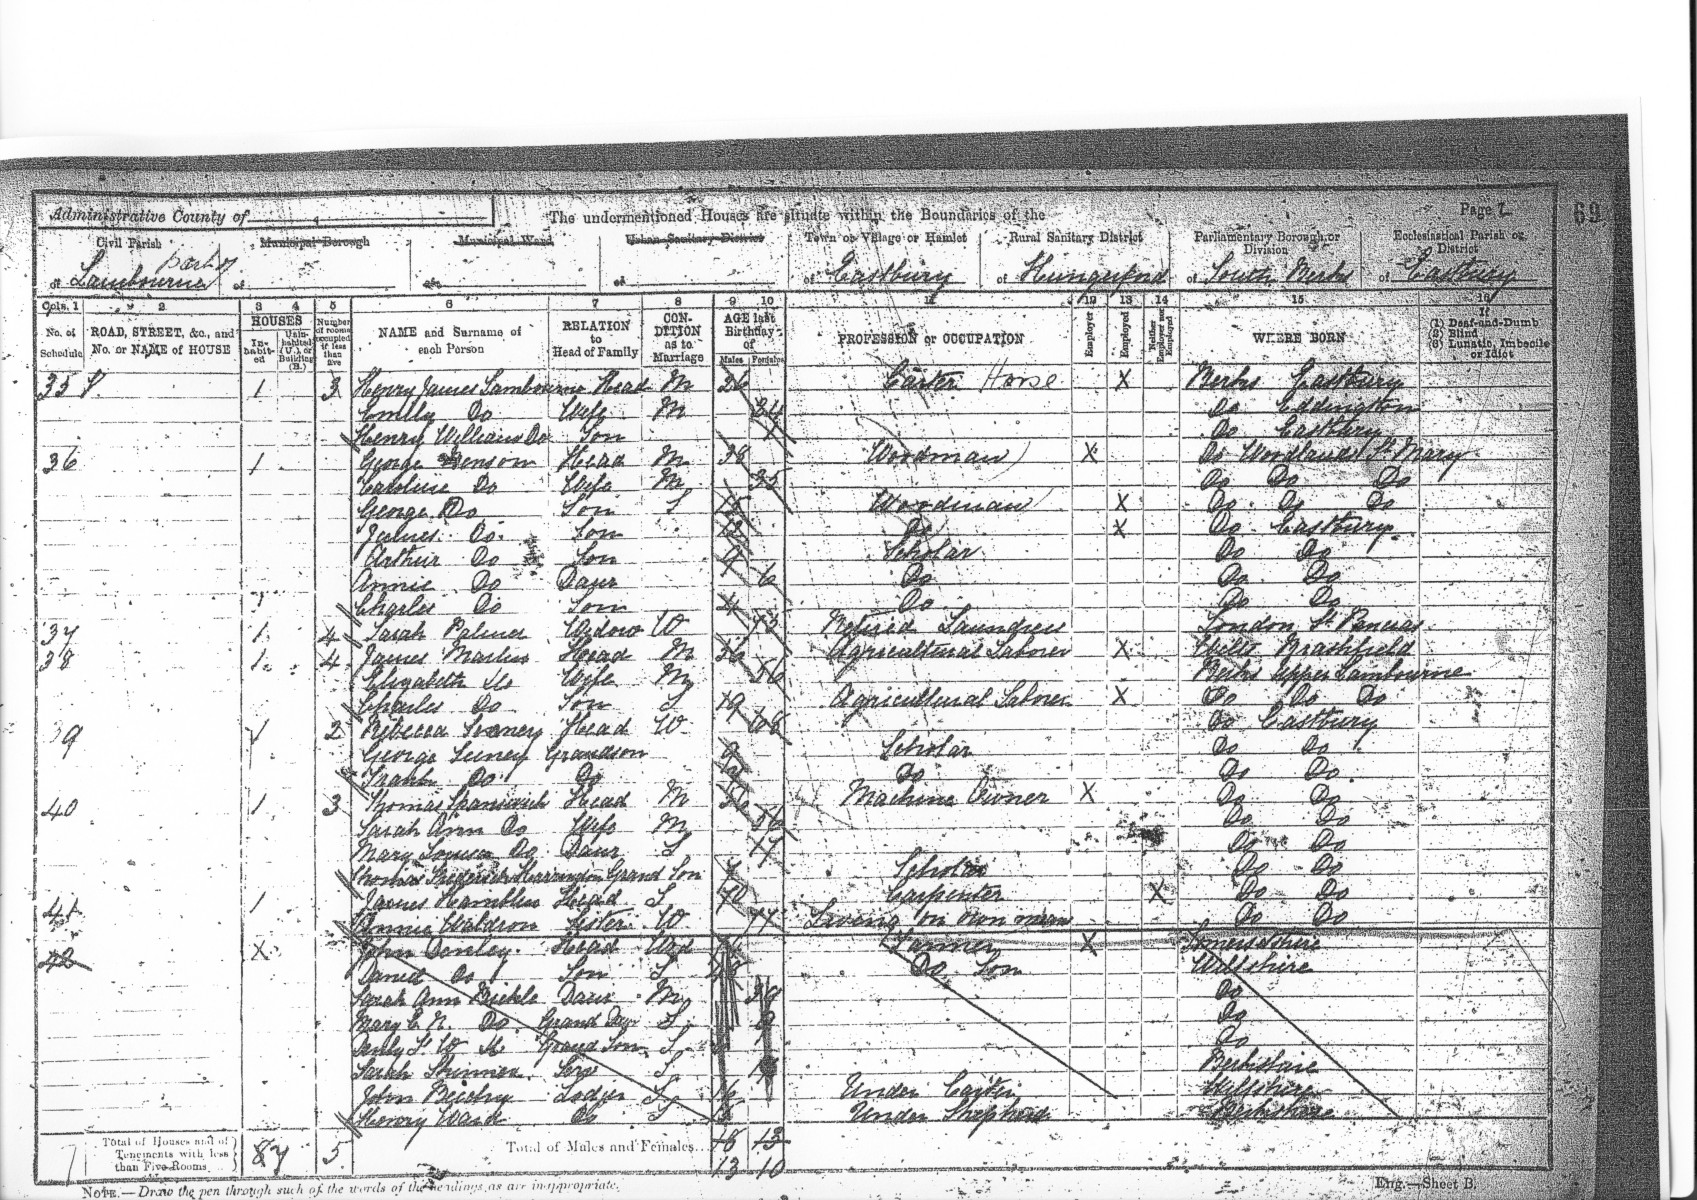 Administrative County of
The undermentioned Houses are situate within the Boundaries of the
Page 7
69
Civil Parish
Municipal Borough
Municipal Ward
Urban Sanitary District
Town or Village or Hamlet
Rural Sanitary District
Parliamentary Borough or Division
Ecclesiastical Parish or District
of Lambourne part of
of
of
of
of Eastbury
of Hungerford
of South Berks
of Eastbury
Cols. 1 2 3 4 5 6 7 8 9 10 11 12 13 14 15 16
No. of Schedule
ROAD, STREET, &c., and No. or NAME of HOUSE
HOUSES
In-habit-ed
Unin-habited (U.), or Building (B.)
Number of rooms occupied if less than five
NAME and Surname of each Person
RELATION to Head of Family
CON-DITION as to Marriage
AGE last Birthday of
Males Females
PROFESSION or OCCUPATION
Employer
Employed
Neither Employer nor Employed
WHERE BORN
If (1) Deaf-and-Dumb (2) Blind (3) Lunatic, Imbecile or Idiot
35 1 3 Henry James Lambourne Head M 26 Carter Horse X Berks Eastbury
Emily Do Wife M 24 Do Eddington
Henry William Do Son Do Eastbury
36 1 George Head M 38 Woodman X Do Woodlands St Mary
Caroline Do Wife M 35 Do Do Do
George Do Son S Woodman X Do Do Do
James Do Son Do X Do Eastbury
Arthur Do Son 9 Scholar Do Do
Annie Do Daur 6 Do Do Do
Charles Do Son 4 Do Do Do
37 1 4 Sarah Palmer Widow W 73 Retired Laundress London St Pancras
38 1 4 James Martin Head M 56 Agricultural Laborer X Wilts
Elizabeth Do Wife M 56 Berks Upper Lambourne
Charles Do Son S 19 Agricultural Laborer X Do Do Do
39 1 2 Rebecca Head W Do Eastbury
George Grandson 9 Scholar Do Do
Frank Do Do Do Do Do
40 1 3 Thomas Spanswick Head M 56 Machine Owner X Do Do
Sarah Ann Do Wife M 56 Do Do
Mary Louisa Do Daur S 17 Do Do
Thomas Frederick Grand Son 7 Scholar Do Do
41 1 James Hamblin Head S 70 Carpenter X Do Do
Waldron Sister W 77 Living on own means Do Do
42 X John Head Wid Farmer X Somersetshire
Daniel Do Son S Do Son Wiltshire
Sarah Ann Daur M Do
Mary E. Do Grand Daur S 9 Do
Grand Son S Do
Sarah Serv S Berkshire
John Lodger S 16 Under Carter Wiltshire
Henry Ward Do S Under Shepherd Berkshire
71
Total of Houses and of Tenements with less than Five Rooms
87 5
Total of Males and Females...
18 13
13 10
NOTE.—Draw the pen through such of the words of the headings as are inappropriate.
Eng.—Sheet B.